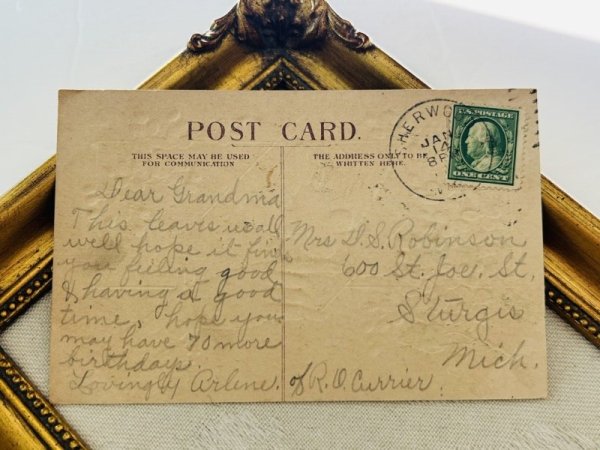 POST CARD.
THIS SPACE MAY BE USED
FOR COMMUNICATION
THE ADDRESS ONLY TO BE
WRITTEN HERE.
SHERWO
JAN
14
U.S. POSTAGE
ONE CENT
Dear Grandma
This leaves us all
well hope it find
you feeling good
& having a good
time, hope you
may have 70 more
birthdays.
Lovingly Arlene. of R. O. Currier.
Mrs D. S. Robinson
600 St. Joe. St,
Sturgis
Mich.